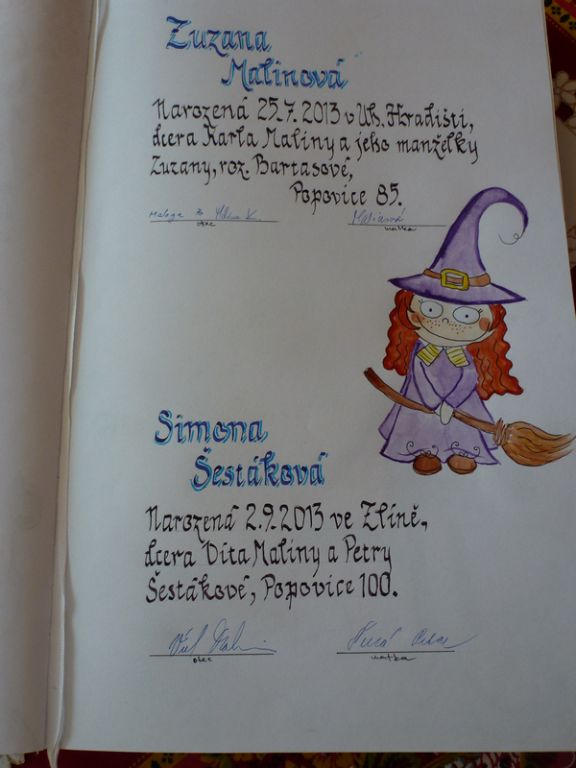 Zuzana
Malinová
Narozená 25.7. 2013 v Uh. Hradišti,
dcera Karla Maliny a jeho manželky
Zuzany, roz. Bartasové,
Popovice 85.
Malinová
otec
matka
Simona
Šestáková
Narozená 2.9.2013 ve Zlíně,
dcera Víta Maliny a Petry
Šestákové, Popovice 100.
otec
matka